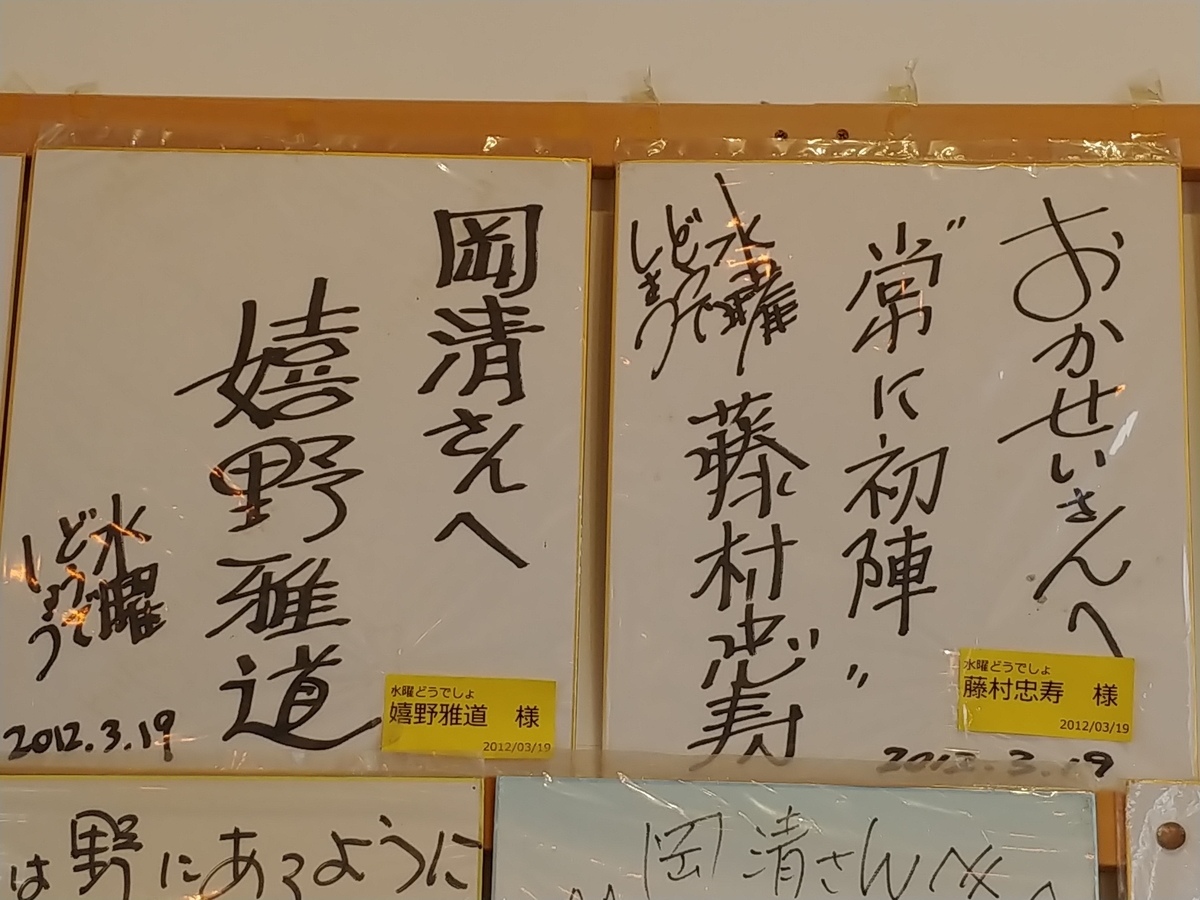 岡清さんへ
嬉野雅道
水曜
どうで
しょう
2012.3.19
水曜どうでしょ
嬉野雅道 様
2012/03/19
おかせいさんへ
"常に初陣"
水曜
どうで
しょう
藤村忠寿
2012.3.19
水曜どうでしょ
藤村忠寿 様
2012/03/19
は野にあるように
岡清さんへ